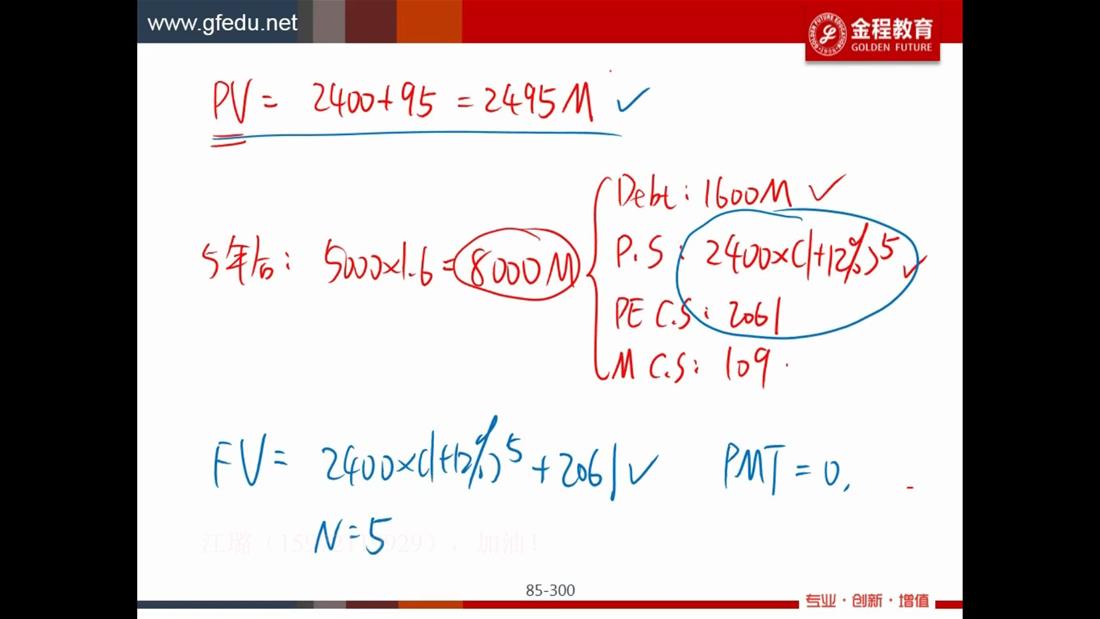 www.gfedu.net
金程教育
GOLDEN FUTURE
PV = 2400+95 = 2495M ✓
Debt: 1600M ✓
5年后: 5000×1.6 = 8000M
P.S: 2400×(1+12%)^5 ✓
PE C.S: 2061
M C.S: 109
FV = 2400×(1+12%)^5 + 2061 ✓ PMT = 0,
N = 5
加油！
85-300
专业·创新·增值